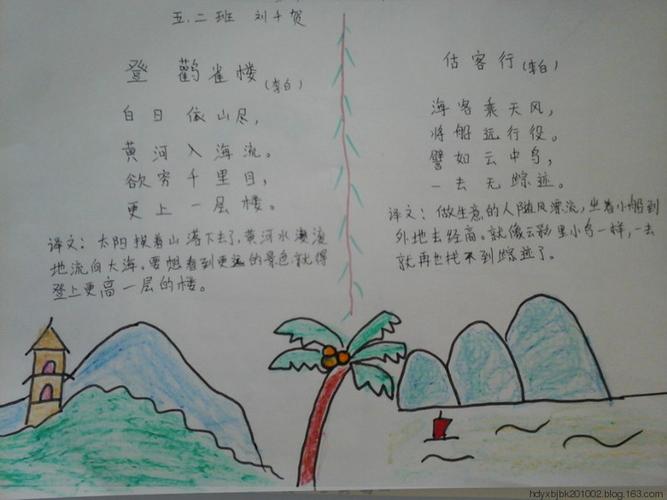 五.二班 刘千贺
登鹳雀楼(李白)
白日依山尽,
黄河入海流。
欲穷千里目,
更上一层楼。
译文:太阳挨着山落下去了,黄河水滚滚
地流向大海。要想看到更远的景色就得
登上更高一层的楼。
估客行(李白)
海客乘天风,
将船远行役。
譬如云中鸟,
一去无踪迹。
译文:做生意的人随风漂流,坐着小船到
外地去经商。就像云影里小鸟一样,一去
就再也找不到踪迹了。
hdyxbjbk201002.blog.163.com